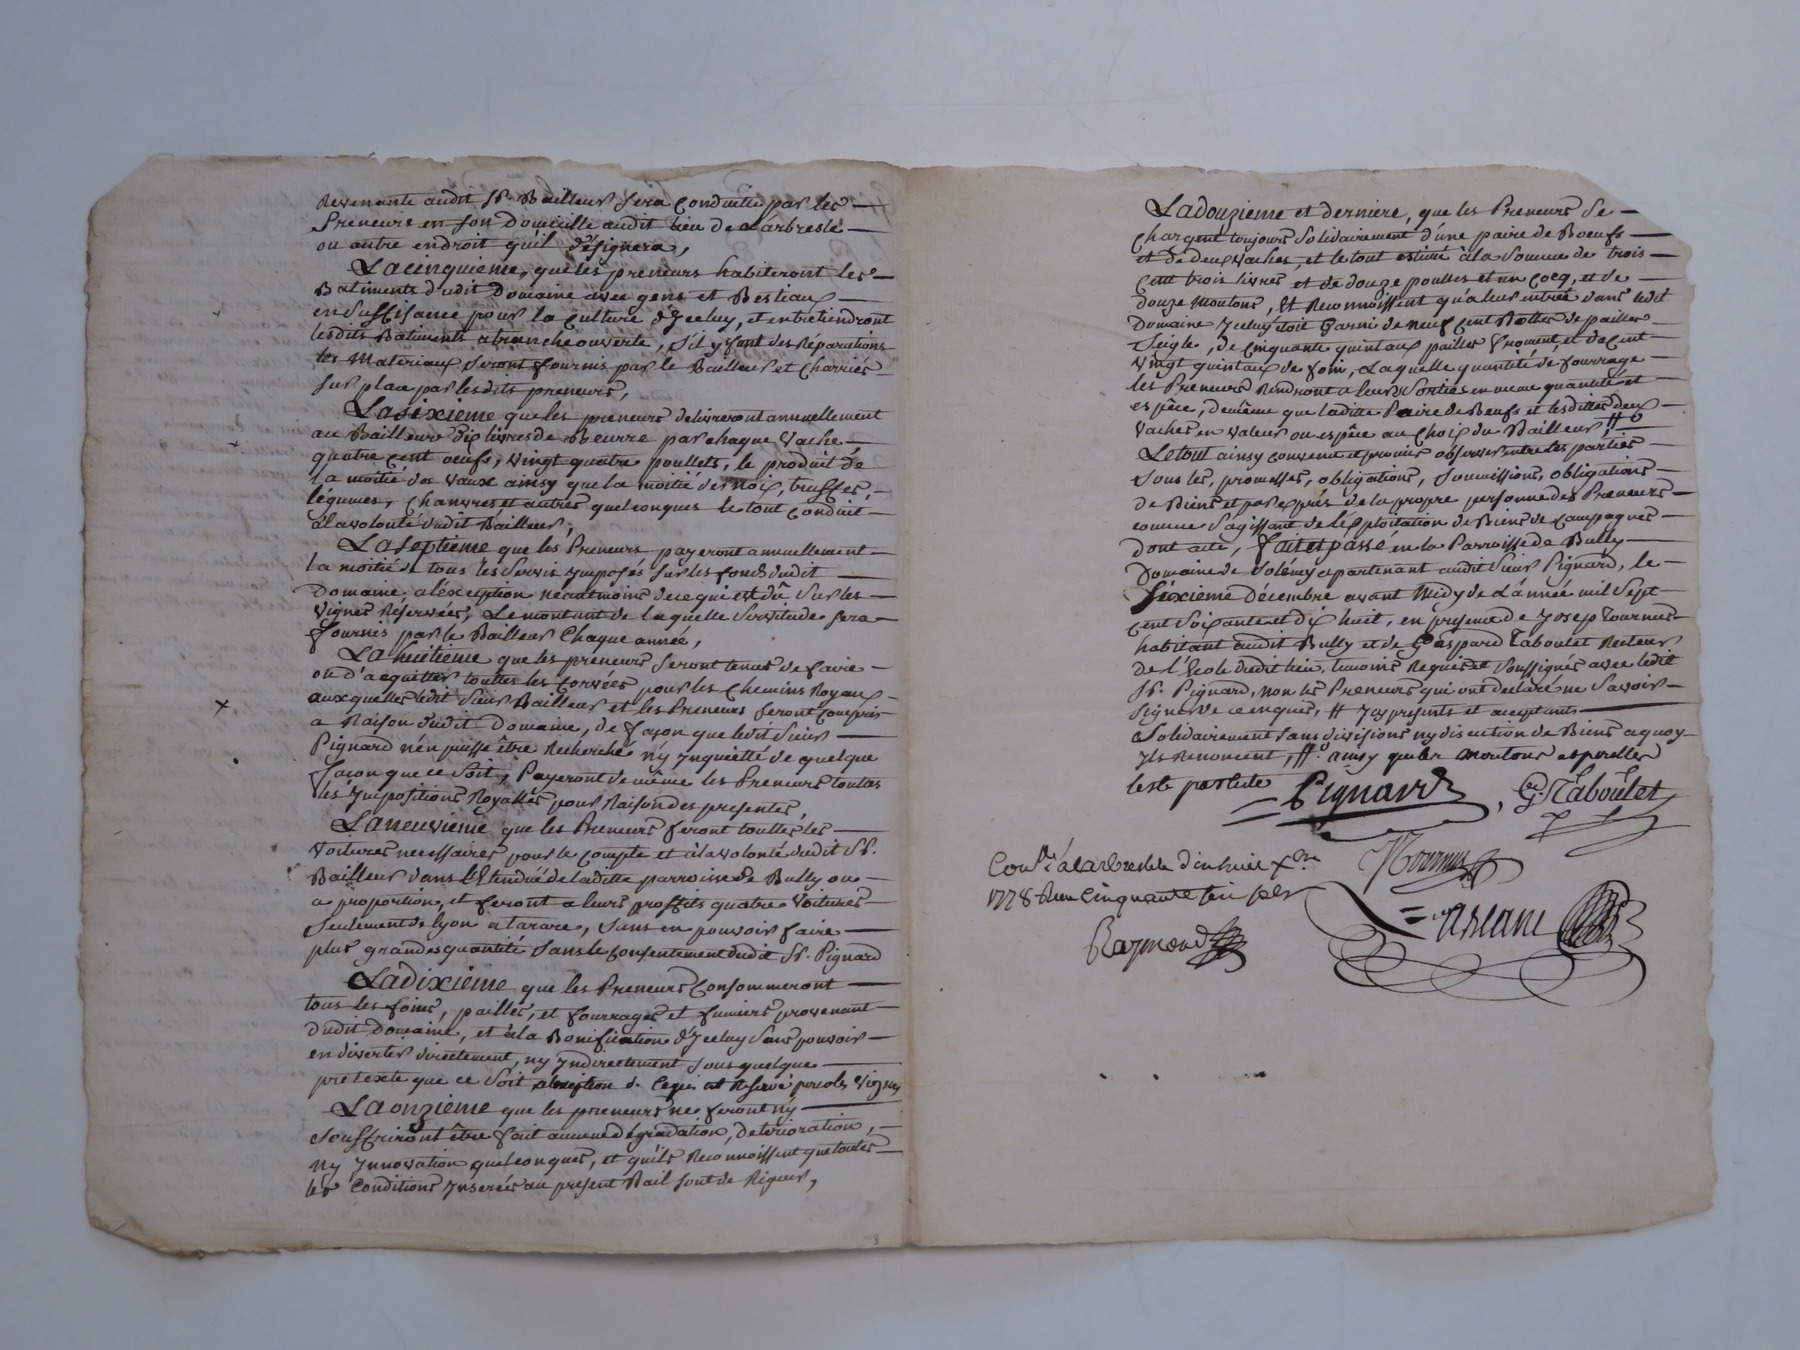 Revenante audit Sr. Bailleur sera conduitte par les
Preneurs en son Domicille audit lieu de Larbresle
ou autre endroit qu'il désignera,
La cinquieme, que les preneurs habiteront les
Batiments dudit Domaine avec gens et Bestiaux
en suffisance pour la culture d'Jceluy, et entretiendront
lesdits Batiments a tranche ouverte, s'il y font des Reparations
les Materiaux seront fournis par le Bailleur et Charriés
sur place par lesdits preneurs,
La sixieme que les preneurs delivreront annuellement
au Bailleur dix livres de Beurre par chaque Vache
quatre cent oeufs, vingt quatre poullets, le produit de
La moitié des Vaux ainsy que la moitié des noix, truffes,
légumes, Chanvres et autres quelconques le tout conduit
a la volonté dudit Bailleur,
La septieme que les Preneurs payeront annuellement
la moitié de tous les servis Jmposés sur les fonds dudit
Domaine, a l'éxception néantmoins de ce qui est dû sur les
Vignes Réservées, Le montant de laquelle servitude sera
fournis par le Bailleur Chaque année,
La huitieme que les preneurs seront tenus de faire
ou d'acquitter touttes les corvées pour les Chemins Royaux
auxquelles ledit Sieur Bailleur et les Preneurs seront compris
a Raison dudit Domaine, de façon que ledit Sieur
Pignard n'én puisse être Recherché n'y Jnquietté de quelque
façon que ce soit, Payeront de même les Preneurs touttes
les Jmpositions Royalles pour Raison des presentes,
La neuvieme que les Preneurs feront touttes les
Voitures necessaires pour le compte et à la volonté dudit Sr.
Bailleur dans l'Etendué de laditte parroisse de Bully ou
a proportion, et feront a leurs proffits quatre Voitures
seulement de lyon a tarare, sans en pouvoir faire
plus grandes quantité sans le consentement dudit Sr. Pignard
La dixieme que les Preneurs Consommeront
tous les foins, pailles, et fourrages et fumiers provenant
dudit Domaine, et à la Bonification d'Jceluy sans pouvoir
en divertir directement, ny Jndirectement sous quelque
pretexte que ce soit a l'exception de ce qui est Reservé pour les vignes
La onzieme que les preneurs ne feront ny
souffriront être fait aucune dégradation, deterioration,
ny Jnnovation quelconques, et qu'ils Reconnoissent que toutes
les Conditions Jnserées au present Bail sont de Rigueur,
La douzieme et derniere, que les Preneurs se
Chargent toujours solidairement d'une paire de Boeufs
et de deux vaches, et le tout estimé à la somme de trois
Cent trois livres et de douze poulles et un Cocq, et de
douze Moutons, Et Reconnoissent qu'a leur entrée dans ledit
Domaine Jceluy étoit Garni de neuf Cent Bottes de pailles
Seigle, de cinquante quintaux pailles froment et de Cent
Vingt quintaux de foin, Laquelle quantité de fourrage
les Preneurs Rendront a leurs sorties en meme quantité et
espêce, de même que laditte Paire de Boeufs et lesdittes deux
Vaches en valeur ou espêce au choix du Bailleur, #
Le tout ainsy convenu et promis observer entre les parties
sous les, promesses, obligations, soumissions, obligations
de Biens et par exprés de la propre personne des Preneurs
comme s'agissant de l'éxploitation de Biens de Campagnes
dont acte, fait et passé en la Parroisse de Bully
Domaine de Solémy apartenant audit Sieur Pignard, le
Seixieme décembre avant Midy de L'année mil sept
Cent soixante et dix huit, en presence de Josep Tournus
habitant audit Bully et de Gaspard Taboulet Recteur
de l'Ecole dudit lieu, temoins Requis et soussignés avec ledit
Sr. Pignard, non les Preneurs qui ont declaré ne savoir
signer de ce enquis, # Jcy presents et acceptants
solidairement sans divisions ny discution de Biens a quoy
Jls Renoncent, #. ainsy que les moutons et poulles
Pignard
G. Taboulet
Con.le a Larbresle dix huit xbre
Tournus
1778 Reçu cinquante six sols
Raymond